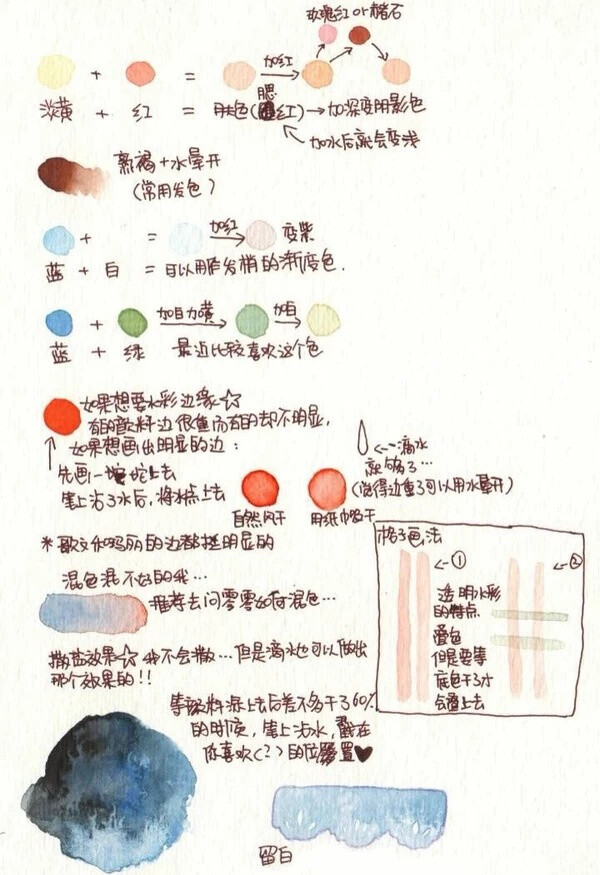 玫瑰红 or 赭石
+ = 加红
淡黄 + 红 = 肤色(腮红)→加深变阴影色
加水后就会变浅
熟褐+水晕开
(常用发色)
+ = 加红 变紫
蓝 + 白 = 可以用作发梢的渐变色.
+ 加白加黄 加白
蓝 + 绿 最近比较喜欢这个色
如果想要水彩边缘☆
有的颜料边很重而有的却不明显,
如果想画出明显的边:
先画一坨上去
笔上沾了水后,将水点上去
←--滴水
就够了…
(觉得边重了可以用水晕开)
自然风干 用纸巾吸干
*歌文和吗丽的边都挺明显的
混色混不好的我…
推荐去问零零如何混色…
撒盐效果☆ 我不会撒…但是滴水也可以做出
那个效果的!!
等颜料涂上去后差不多干了60%
的时候,笔上沾水,戳在
你喜欢(?)的位置♥
留白
格子画法
←-① ←-②
透明水彩
的特点
叠色
但是要等
底色干了才
会叠上去